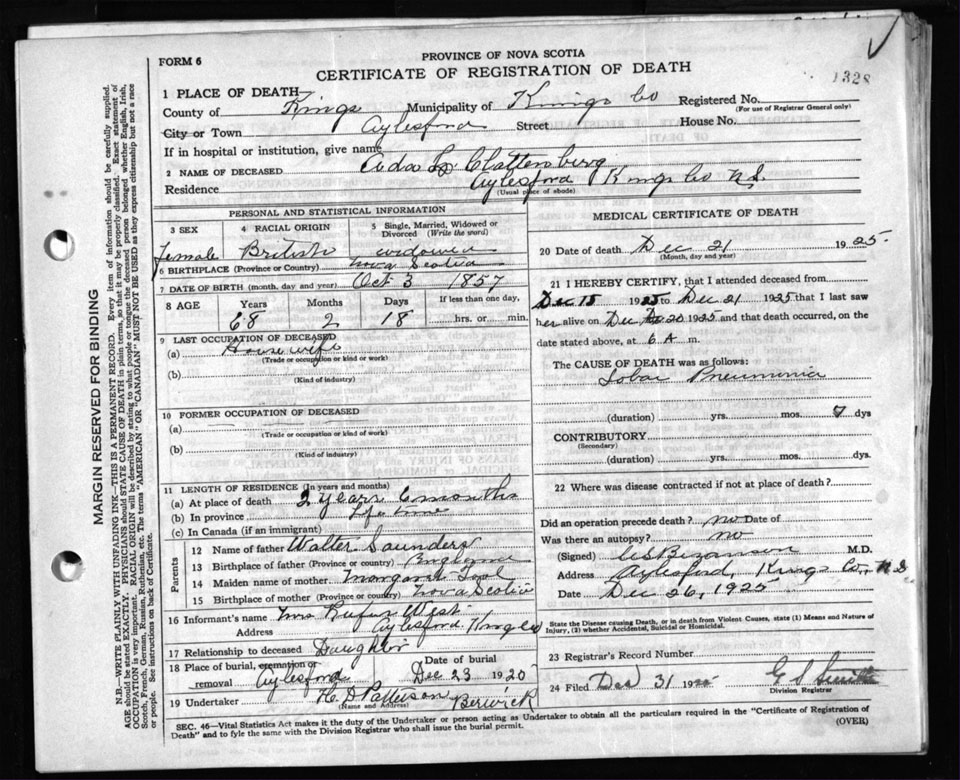 FORM 6
PROVINCE OF NOVA SCOTIA
CERTIFICATE OF REGISTRATION OF DEATH
1328
1 PLACE OF DEATH
County of Kings Municipality of Kings Co Registered No.
(For use of Registrar General only)
City or Town Aylesford Street House No.
If in hospital or institution, give name
2 NAME OF DECEASED Ada L. Clattenburg
Residence Aylesford Kings Co N.S.
(Usual place of abode)
PERSONAL AND STATISTICAL INFORMATION
3 SEX 4 RACIAL ORIGIN 5 Single, Married, Widowed or Divorced (Write the word)
female British widowed
6 BIRTHPLACE (Province or Country) Nova Scotia
7 DATE OF BIRTH (month, day and year) Oct 3 1857
8 AGE Years Months Days If less than one day,
68 2 18 hrs. or min.
9 LAST OCCUPATION OF DECEASED
(a) Housewife
(Trade or occupation or kind of work)
(b)
(Kind of industry)
10 FORMER OCCUPATION OF DECEASED
(a)
(Trade or occupation or kind of work)
(b)
(Kind of industry)
11 LENGTH OF RESIDENCE (In years and months)
(a) At place of death 2 years 6 months
(b) In province Life time
(c) In Canada (if an immigrant)
Parents
12 Name of father Walter Saunders
13 Birthplace of father (Province or country) England
14 Maiden name of mother Margaret
15 Birthplace of mother (Province or country) Nova Scotia
16 Informant's name Mrs Rufus West
Address Aylesford Kings Co
17 Relationship to deceased Daughter
18 Place of burial, cremation or removal Aylesford Date of burial Dec 23 1920
19 Undertaker H. D Patterson Berwick
(Name and Address)
MEDICAL CERTIFICATE OF DEATH
20 Date of death Dec 21 1925.
(Month, day and year)
21 I HEREBY CERTIFY, that I attended deceased from
Dec 15 1925 to Dec 21 1925 that I last saw
her alive on Dec 20 1925 and that death occurred, on the
date stated above, at 6 A m.
The CAUSE OF DEATH was as follows:
Lobar Pneumonia
(duration) yrs. mos. 7 dys
CONTRIBUTORY
(Secondary)
(duration) yrs. mos. dys.
22 Where was disease contracted if not at place of death?
Did an operation precede death? no Date of
Was there an autopsy? no
(Signed) M.D.
Address Aylesford, Kings Co, N S
Date Dec 26, 1925
State the Disease causing Death, or in death from Violent Causes, state (1) Means and Nature of Injury, (2) whether Accidental, Suicidal or Homicidal.
23 Registrar's Record Number
24 Filed Dec 31 19 G S Smith
Division Registrar
SEC. 46—Vital Statistics Act makes it the duty of the Undertaker or person acting as Undertaker to obtain all the particulars required in the "Certificate of Registration of
Death" and to fyle the same with the Division Registrar who shall issue the burial permit.
(OVER)
MARGIN RESERVED FOR BINDING
N.B.—WRITE PLAINLY WITH UNFADING INK—THIS IS A PERMANENT RECORD. Every item of information should be carefully supplied.
AGE should be stated EXACTLY. PHYSICIANS should STATE CAUSE OF DEATH in plain terms, so that it may be properly classified. Exact statement of
OCCUPATION is very important. RACIAL ORIGIN will be described by stating to what people or tongue the deceased person belonged whether English, Irish,
Scotch, French, German, Russian, Ruthenian, etc. The terms "AMERICAN" OR "CANADIAN" MUST NOT BE USED as they express citizenship but not a race
or people. See instructions on back of Certificate.